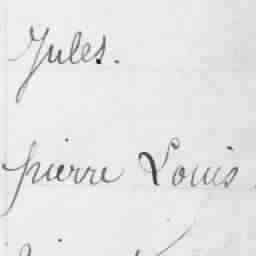 Jules.
pierre Louis